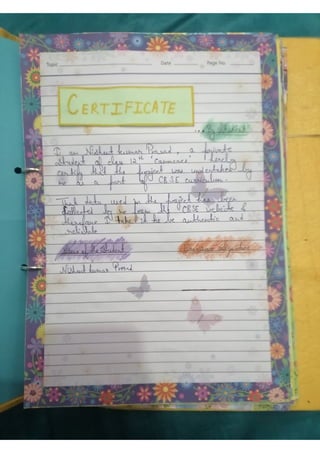 Topic Date Page No.
CERTIFICATE
...by student
I am Nishant kumar Prasad, a private
student of class 12th 'Commerce' hereby
certify that the project was undertaken by
me as a part of CBSE curriculum.
That data used in the project has been
collected by me from the CBSE website &
therefore I it to be authentic and
reliable
Name of the Student Signature
Nishant kumar Prasad